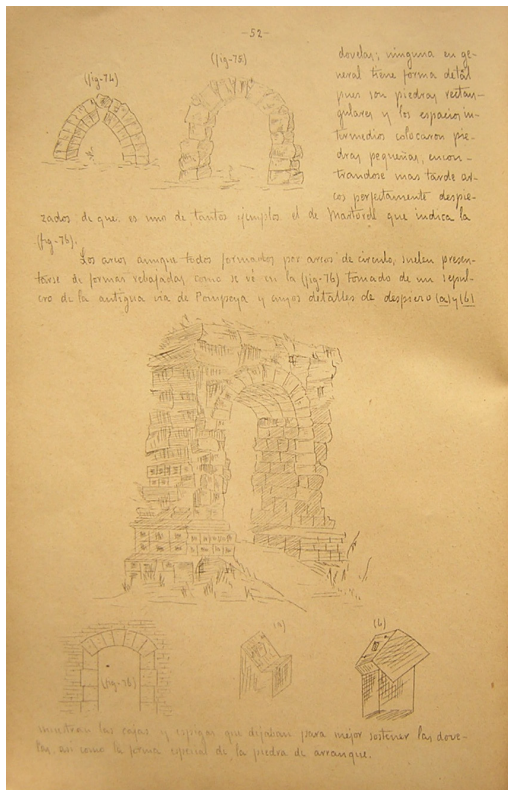 -52-
(fig-74)
(fig-75)
dovelas; ninguna en ge-
neral tiene forma de tal
pues son piedras rectan-
gulares y los espacios in-
termedios colocaron pie-
dras pequeñas, encon-
trandose mas tarde ar-
cos perfectamente despie-
zados de que es uno de tantos ejemplos el de Martorell que indica la
(fig-75).
Los arcos aunque todos formados por arcos de circulo, suelen presen-
tarse de formas rebajadas como se vé en la (fig-76) tomado de un sepul-
cro de la antigua via de Pompeya y cuyos detalles de despiezo (a) y (b)
(fig-76)
(a)
(b)
muestran las cajas y espigas que dejaban para mejor sostener las dove-
las, asi como la forma especial de la piedra de arranque.